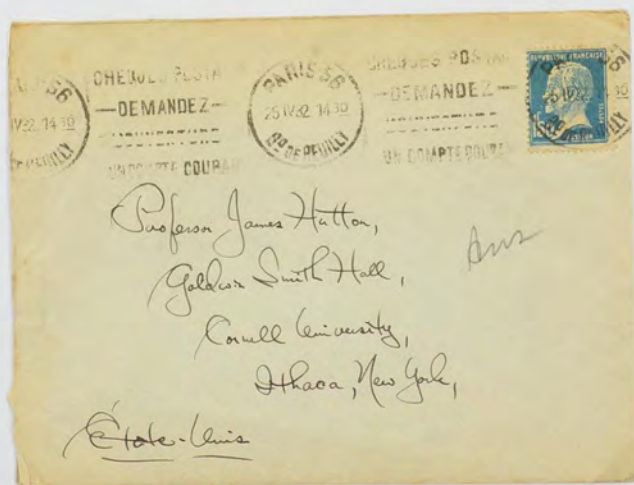 CHEQUES POSTA
DEMANDEZ
UN COMPTE COURAN
PARIS 56
25 IV 32 14 30
Rd DE REUILLY
CHEQUES POSTAU
DEMANDEZ
UN COMPTE COURAN
REPUBLIQUE FRANÇAISE
Professor James Hutton,
Goldwin Smith Hall,
Cornell University,
Ithaca, New York,
États-Unis
Ans